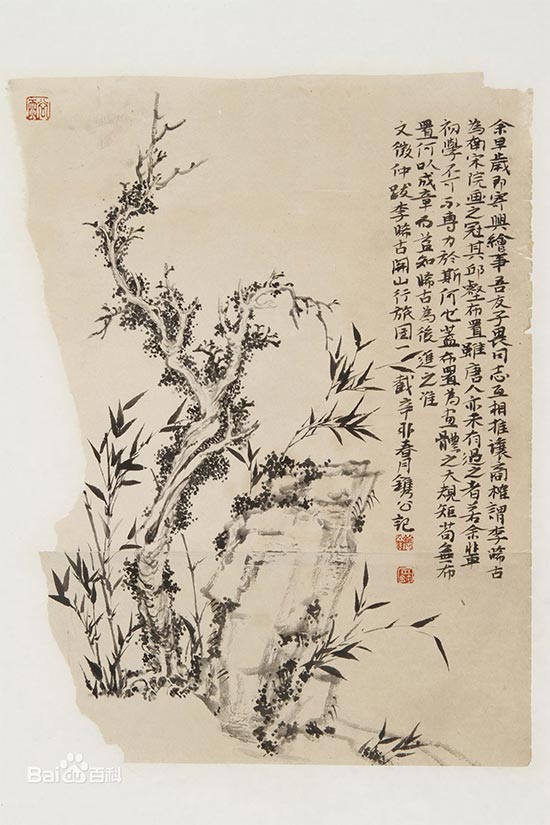 余早歲即寄興繪事吾友子畏同志互相推讓商榷謂李晞古
為南宋院画之冠其邱壑布置雖唐人亦未有過之者若余輩
初學不可不專力於斯何也蓋布置為画體之大規矩苟無布
置何以成章而益知晞古為後進之准
文徵仲跋李晞古關山行旅図一截辛卯春月鐫公記
Bai百科